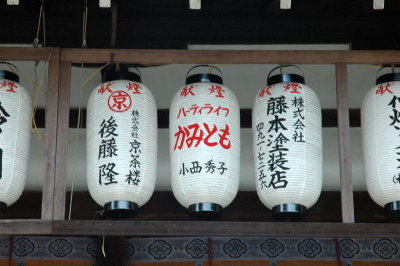 献燈
京
株式会社
京茶楼
後藤隆
献燈
ハーティライフ
かみとも
小西秀子
献燈
株式会社
藤本塗装店
四九一-七二五六
献